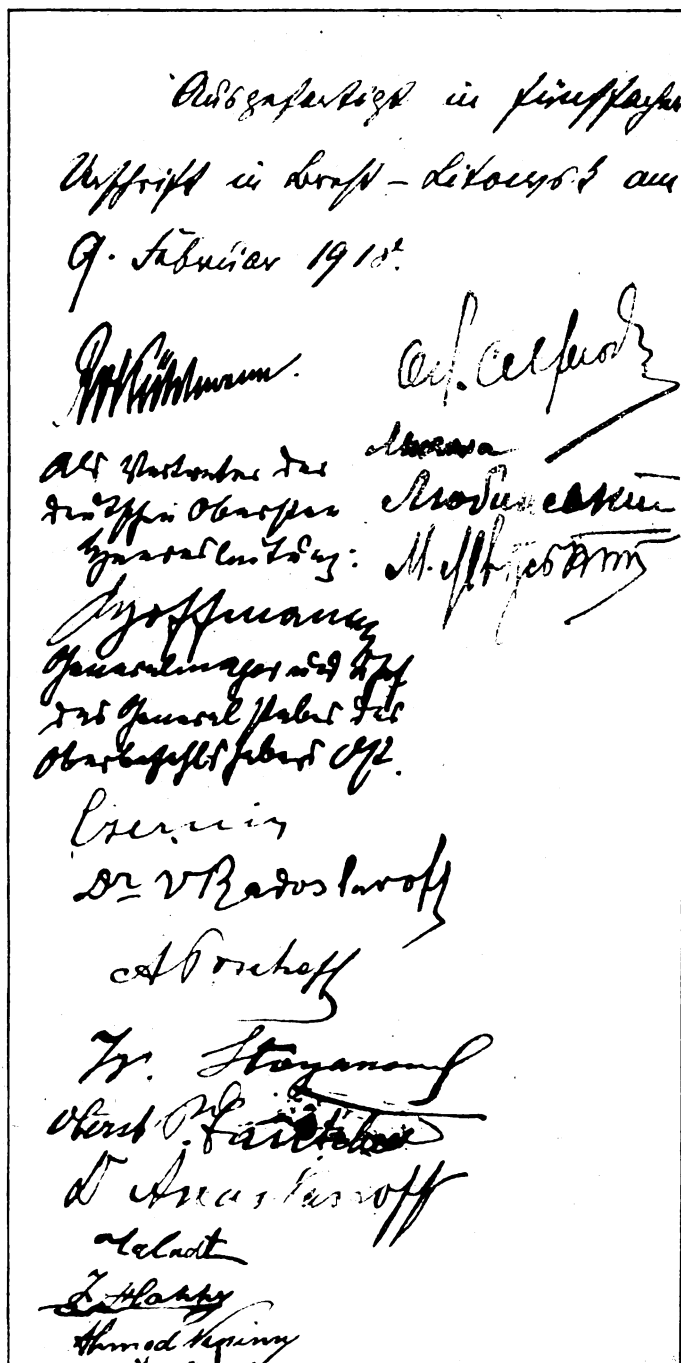 Ausgefertigt in fünffacher
Urschrift in Brest-Litowsk am
9. Februar 1918.
Kühlmann.
Als Vertreter der
deutschen Obersten
Heeresleitung:
Hoffmann
Generalmajor und Chef
des Generalstabes des
Oberbefehlshabers Ost.
Czernin
Dr VRadoslavoff
AToscheff
Iv. Stoyanovitch
Oberst P.
D Anastassoff
Talaat
I. Hakky
Ahmed Nessimy
Микола
Любинський